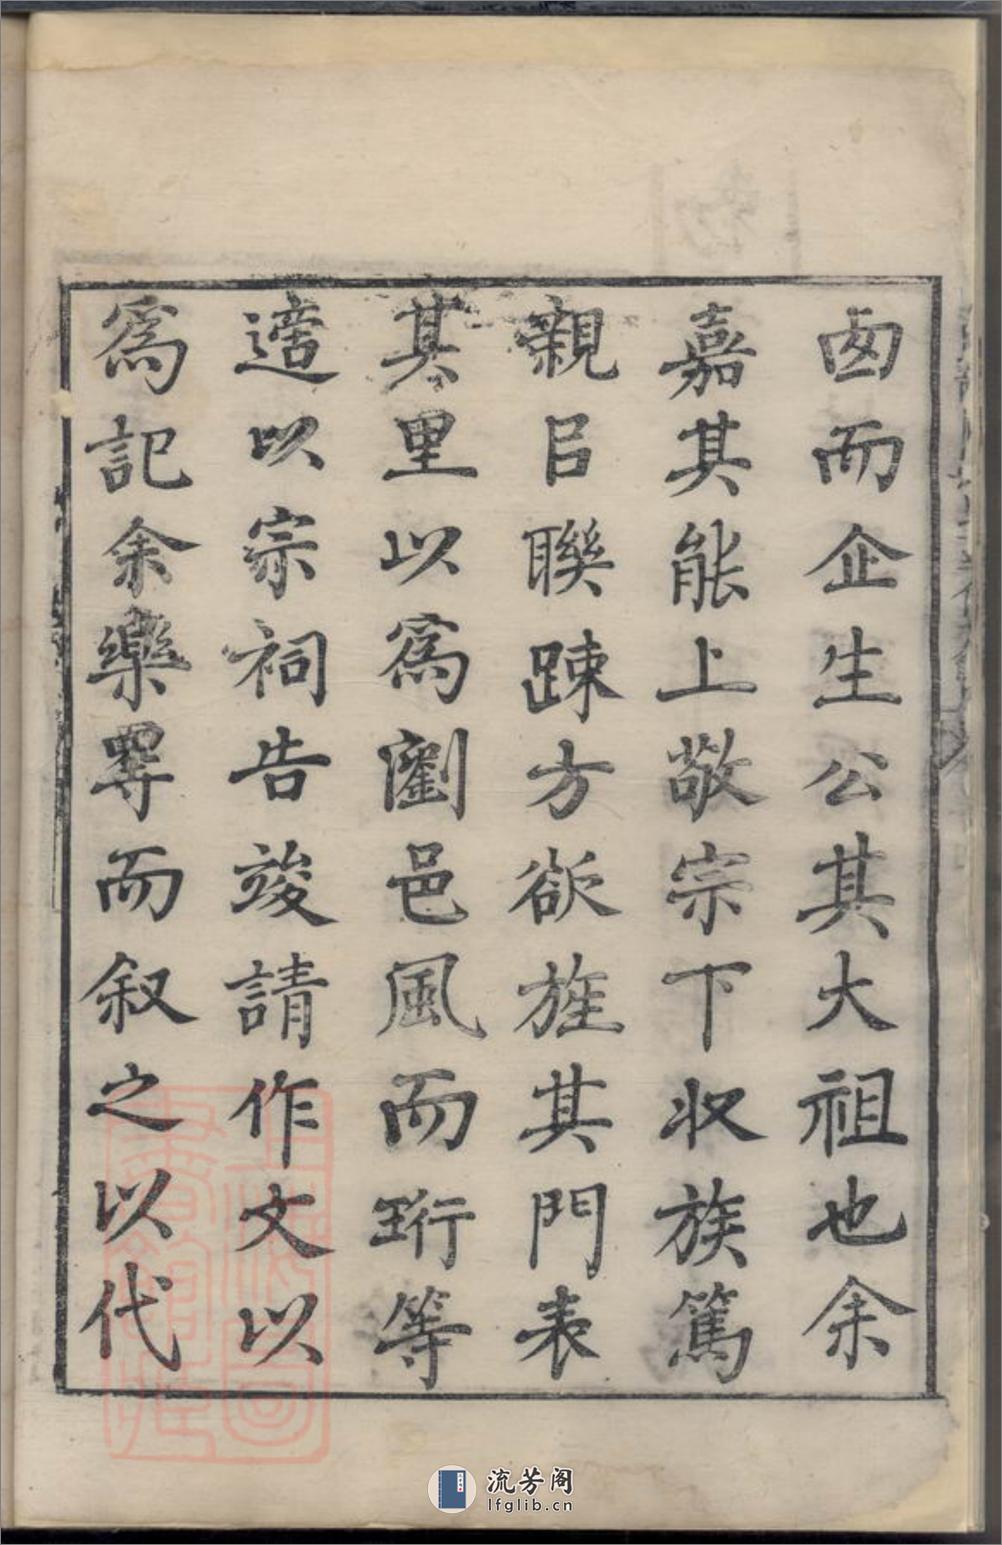 而企生公其大祖也余
嘉其能上敬宗下收族篤
親㠯聯踈方欲旌其門表
其里以爲瀏邑風而珩等
適以宗祠告竣請作文以
爲記余樂爲而叙之以代
流芳阁
lfglib.cn